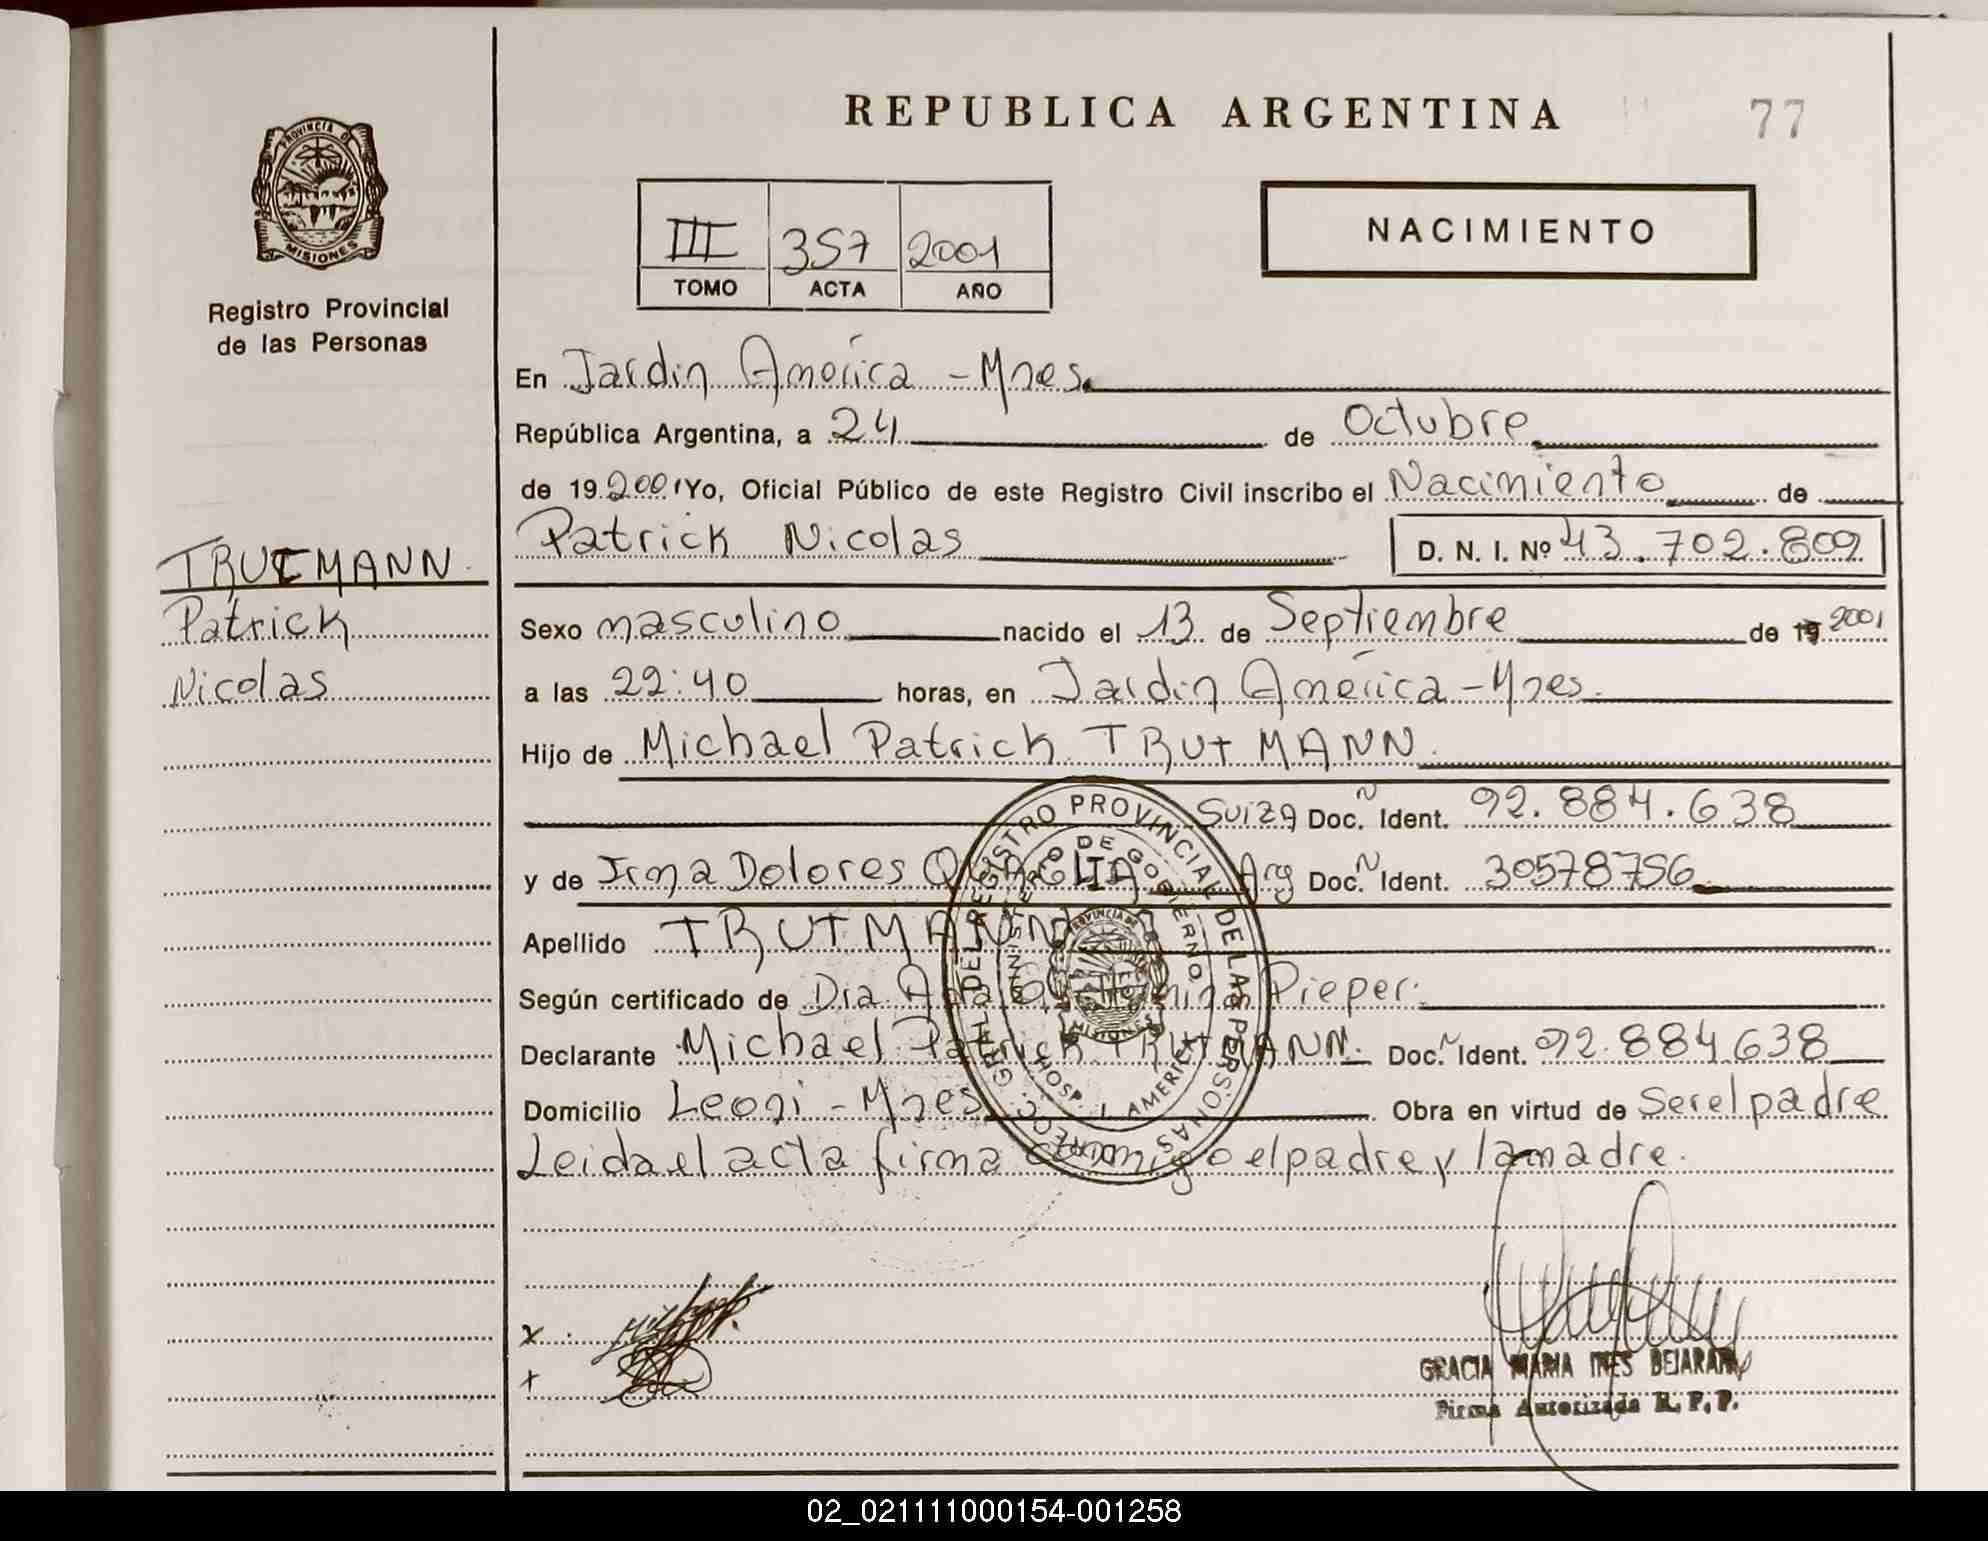 REPUBLICA ARGENTINA 77
PROVINCIA DE
MISIONES
Registro Provincial
de las Personas
III 357 2001
TOMO ACTA AÑO
NACIMIENTO
En Jardin América - Mnes.
República Argentina, a 24 de Octubre
de 19 2001 Yo, Oficial Público de este Registro Civil inscribo el Nacimiento de
Patrick Nicolas D. N. I. Nº 43.702.809
TRUTMANN
Patrick
Nicolas
Sexo masculino nacido el 13 de Septiembre de 19 2001
a las 22:40 horas, en Jardin América - Mnes.
Hijo de Michael Patrick TRUTMANN.
Suiza Doc. N Ident. 92.884.638
y de Irma Dolores Arg Doc. N Ident. 30578756
Apellido TRUTMANN
Según certificado de Dra. Ana Pieper.
Declarante Michael Patrick TRUTMANN. Doc. N Ident. 92.884.638
Domicilio Leoni - Mnes Obra en virtud de Ser el padre
Leida el acta firma conmigo el padre y la madre.
DIRECC. GRAL. DEL REGISTRO PROVINCIAL DE LAS PERSONAS
MINISTERIO DE GOBIERNO
PROVINCIA DE
MISIONES
HOSP. J. AMERICA
x
+
GRACIA MARIA INES BEJARANO
Firma Autorizada R. P. P.
02_021111000154-001258